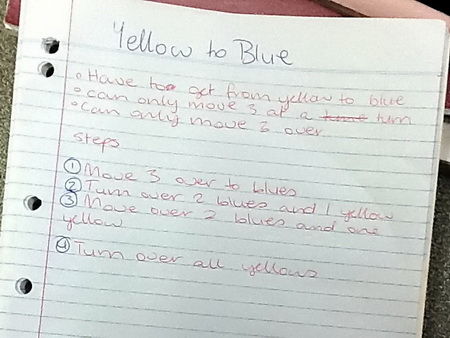 Yellow to Blue
° Have too get from yellow to blue
° can only move 3 at a time turn
° Can only move 3 over
Steps
① Move 3 over to blues
② Turn over 2 blues and 1 yellow
③ Move over 2 blues and one
yellow
④ Turn over all yellows